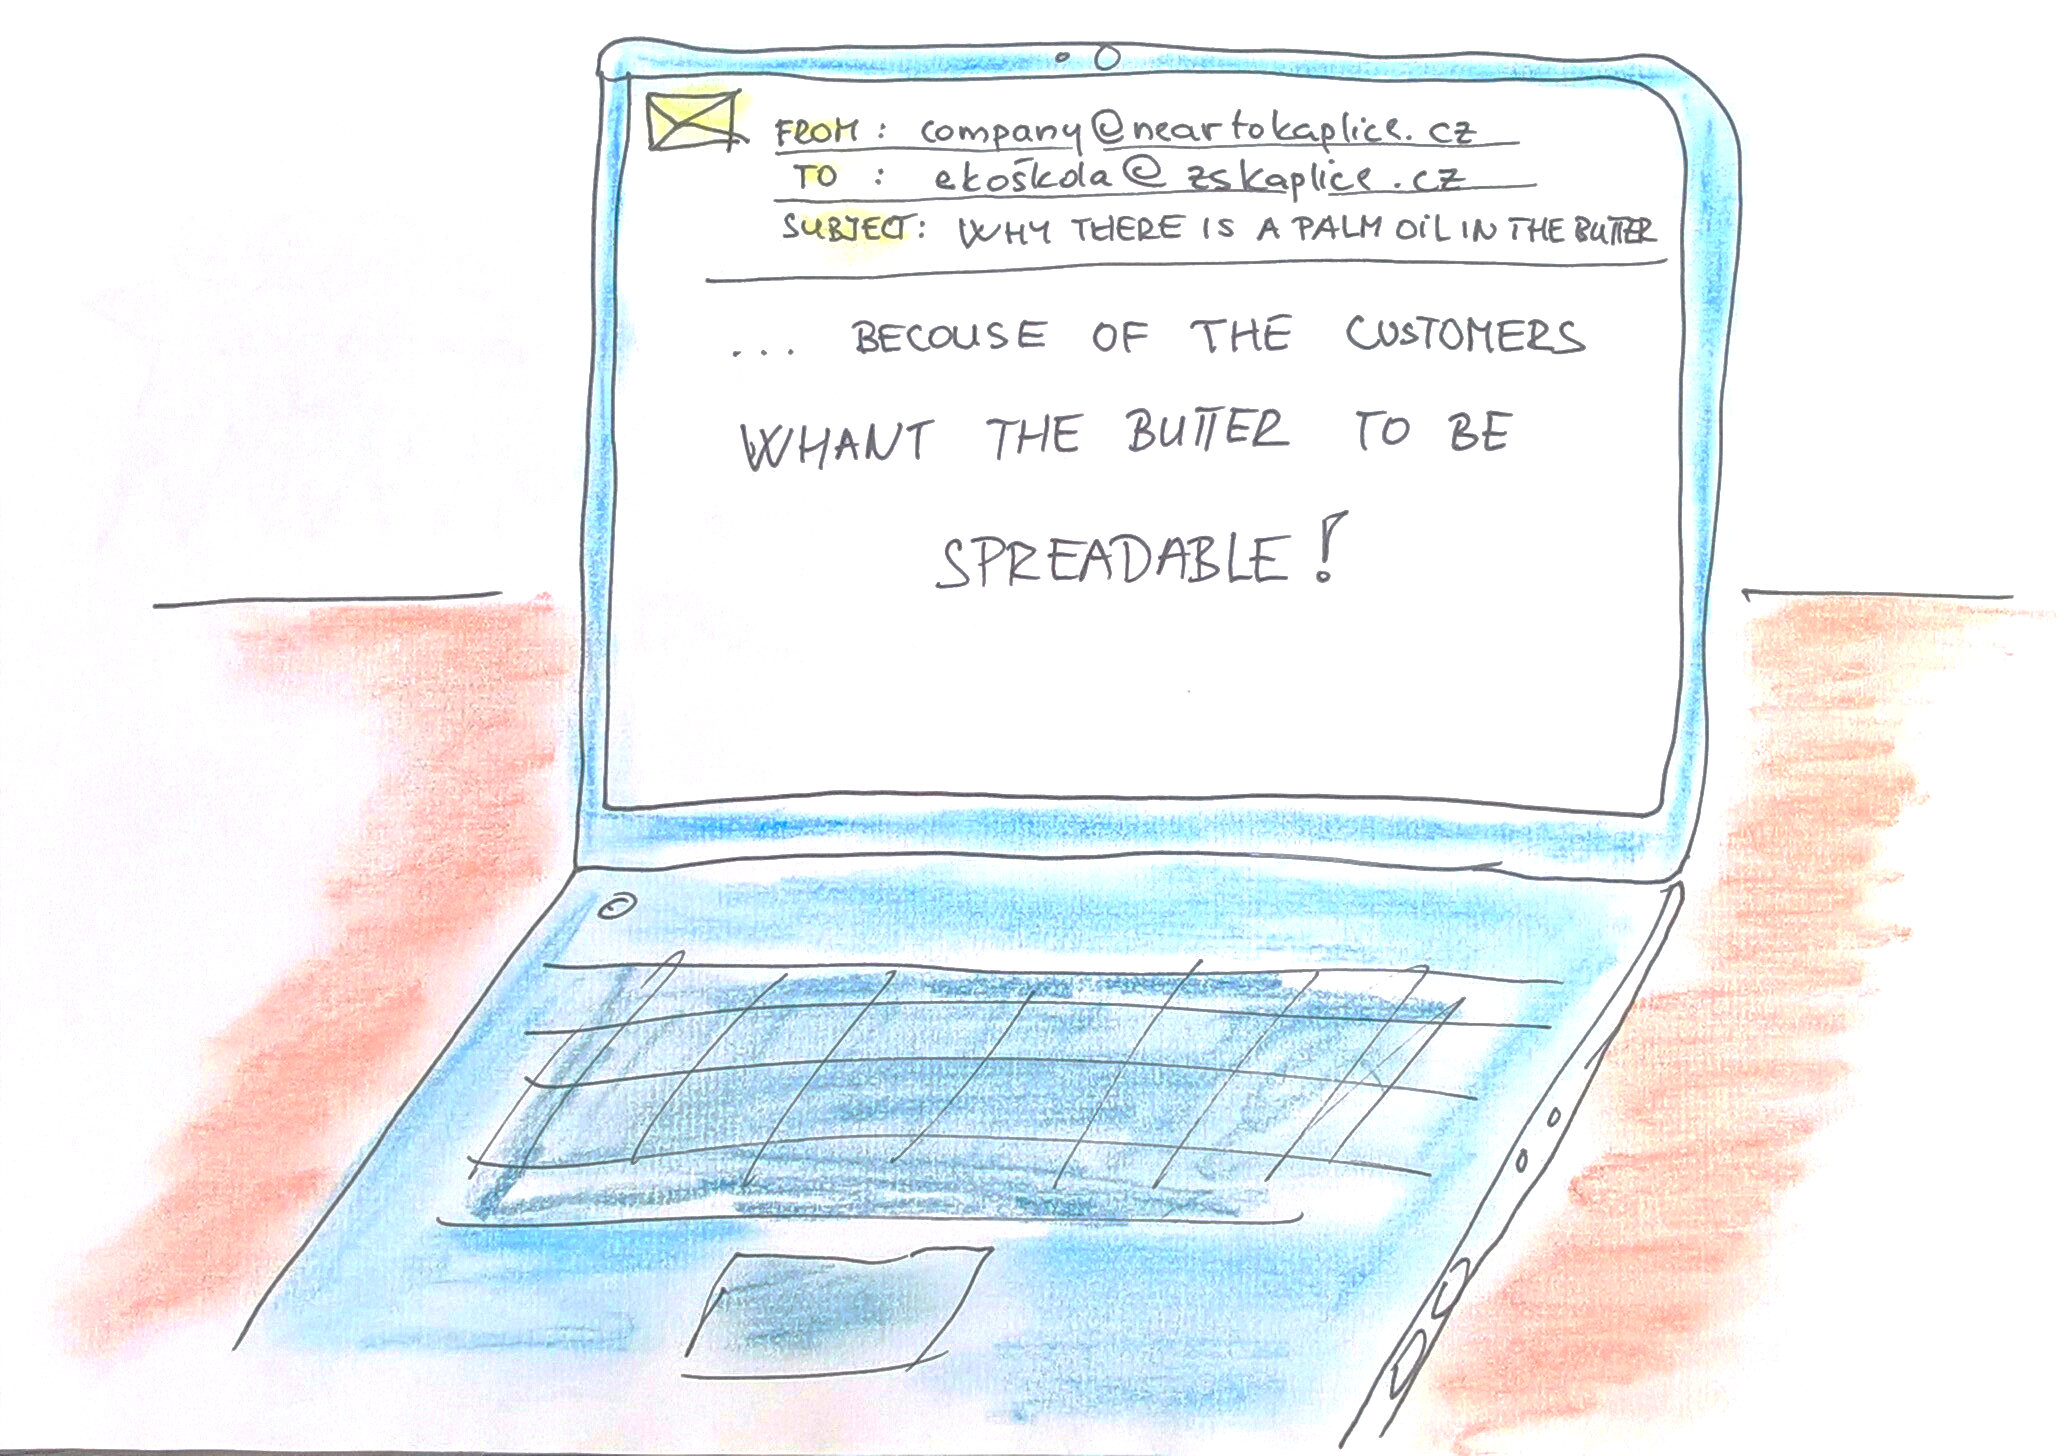 FROM: company@neartokaplice.cz
TO: ekoškola@zskaplice.cz
SUBJECT: WHY THERE IS A PALM OIL IN THE BUTTER
... BECOUSE OF THE CUSTOMERS
WHANT THE BUTTER TO BE
SPREADABLE!